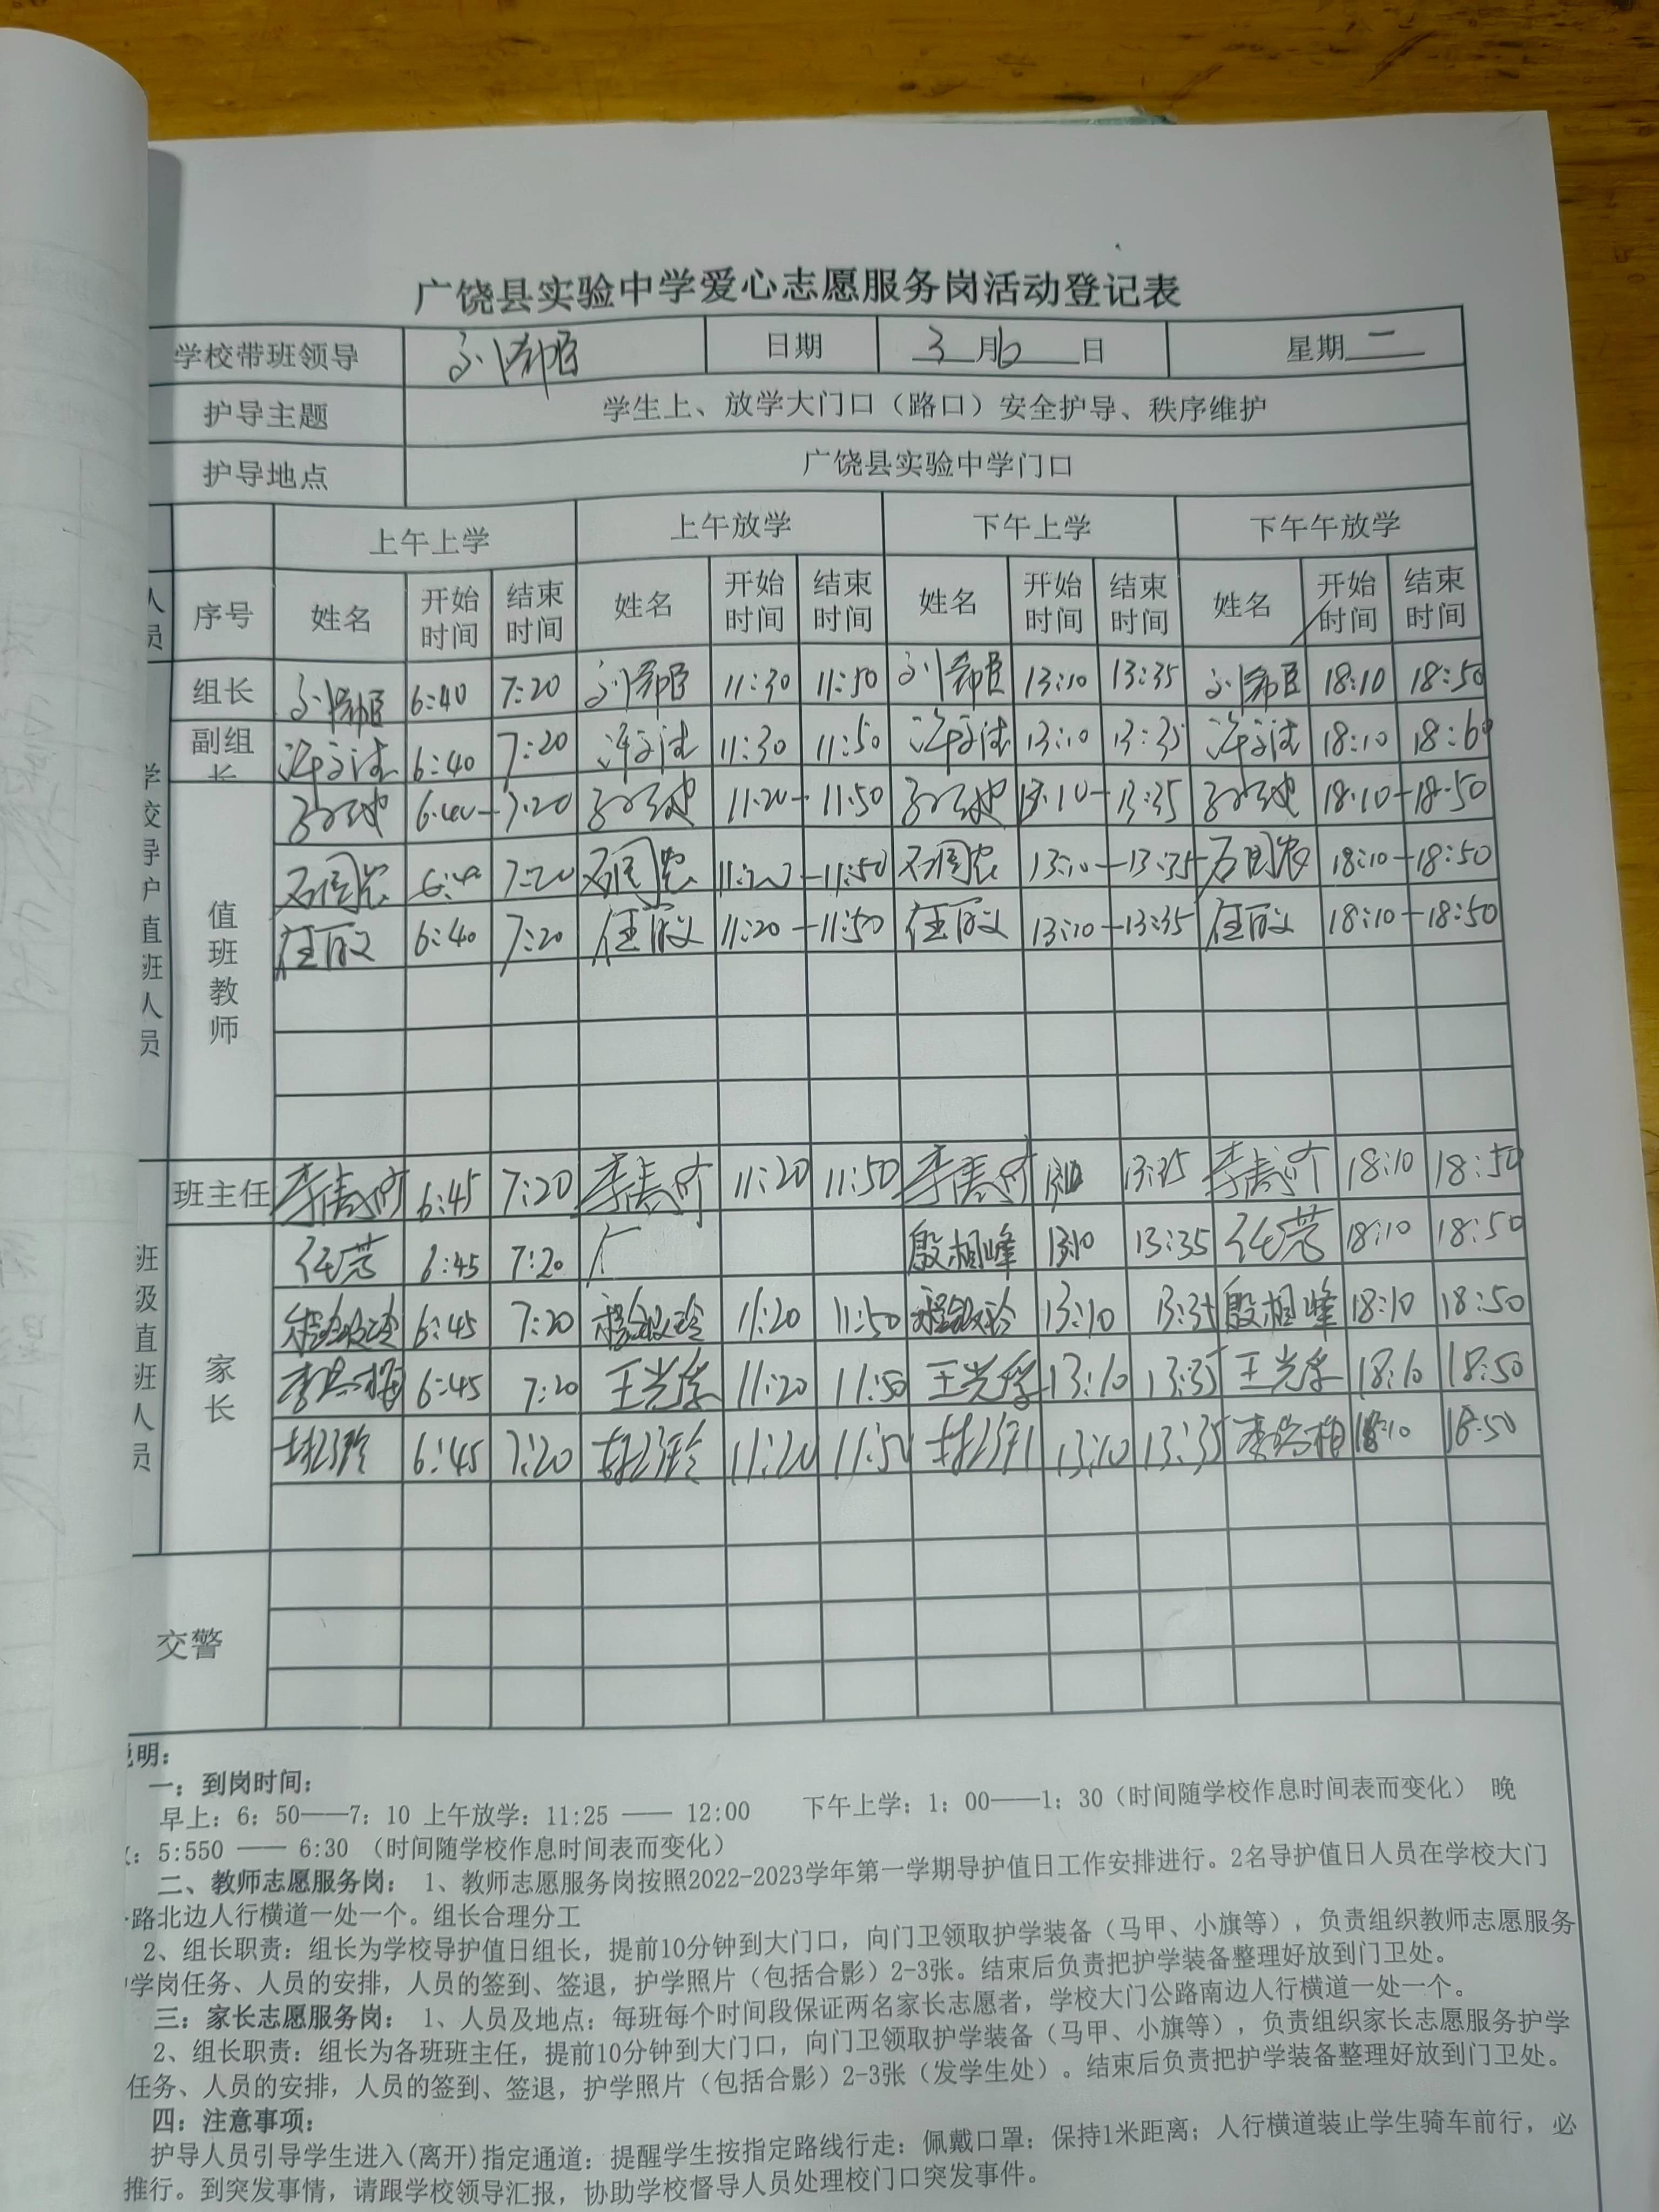 广饶县实验中学爱心志愿服务岗活动登记表
学校带班领导 刘希臣 日期 3月6日 星期二
护导主题 学生上、放学大门口（路口）安全护导、秩序维护
护导地点 广饶县实验中学门口
上午上学 上午放学 下午上学 下午午放学
人员 序号 姓名 开始时间 结束时间 姓名 开始时间 结束时间 姓名 开始时间 结束时间 姓名 开始时间 结束时间
组长 刘希臣 6:40 7:20 刘希臣 11:30 11:50 刘希臣 13:10 13:35 刘希臣 18:10 18:50
副组长 6:40 7:20 11:30 11:50 13:10 13:35 18:10
学校导护值班人员
值班教师
6:40-7:20 11:20-11:50 13:10-13:35 18:10-18:50
石国农 6:40 7:20 石国农 11:20-11:50 石国农 13:10-13:35 石国农 18:10-18:50
6:40 7:20 11:20-11:50 13:10-13:35 18:10-18:50
班主任 6:45 7:20 11:20 11:50 13:35 18:10 18:50
班级直班人员
家长
任芸 6:45 7:20 殷相峰 13:10 13:35 任芸 18:10 18:50
6:45 7:20 11:20 11:50 13:10 13:35 殷相峰 18:10 18:50
6:45 7:20 王光学 11:20 11:50 王光学 13:10 13:35 王光学 18:10 18:50
6:45 7:20 11:20 11:50 13:10 13:35 18:10 18:50
交警
说明：
一：到岗时间：
早上：6：50——7：10 上午放学：11:25 —— 12:00 下午上学：1：00——1：30（时间随学校作息时间表而变化） 晚
：5:550 —— 6:30 （时间随学校作息时间表而变化）
二、教师志愿服务岗： 1、教师志愿服务岗按照2022-2023学年第一学期导护值日工作安排进行。2名导护值日人员在学校大门
路北边人行横道一处一个。组长合理分工
2、组长职责：组长为学校导护值日组长，提前10分钟到大门口，向门卫领取护学装备（马甲、小旗等），负责组织教师志愿服务
学岗任务、人员的安排，人员的签到、签退，护学照片（包括合影）2-3张。结束后负责把护学装备整理好放到门卫处。
三：家长志愿服务岗： 1、人员及地点：每班每个时间段保证两名家长志愿者，学校大门公路南边人行横道一处一个。
2、组长职责：组长为各班班主任，提前10分钟到大门口，向门卫领取护学装备（马甲、小旗等），负责组织家长志愿服务护学
任务、人员的安排，人员的签到、签退，护学照片（包括合影）2-3张（发学生处）。结束后负责把护学装备整理好放到门卫处。
四：注意事项：
护导人员引导学生进入(离开)指定通道：提醒学生按指定路线行走：佩戴口罩：保持1米距离；人行横道装止学生骑车前行，必
推行。到突发事情，请跟学校领导汇报，协助学校督导人员处理校门口突发事件。